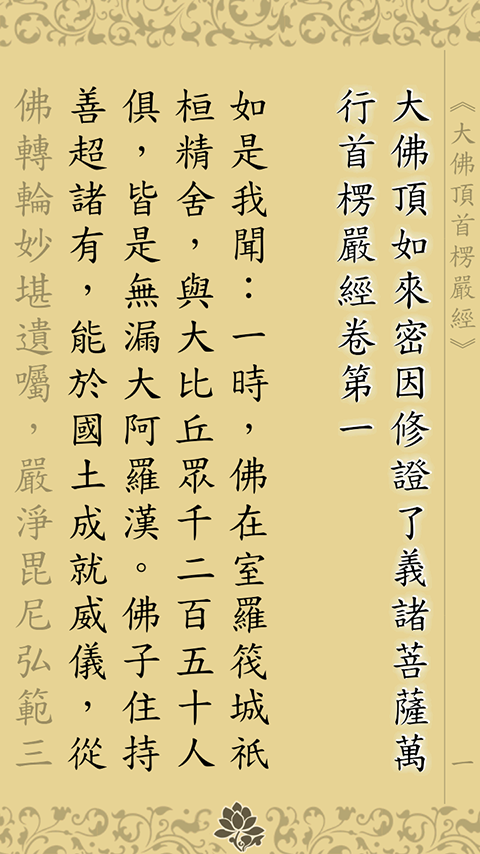 《大佛頂首楞嚴經》
一
大佛頂如來密因修證了義諸菩薩萬
行首楞嚴經卷第一
如是我聞：一時，佛在室羅筏城祇
桓精舍，與大比丘眾千二百五十人
俱，皆是無漏大阿羅漢。佛子住持
善超諸有，能於國土成就威儀，從
佛轉輪妙堪遺囑，嚴淨毘尼弘範三